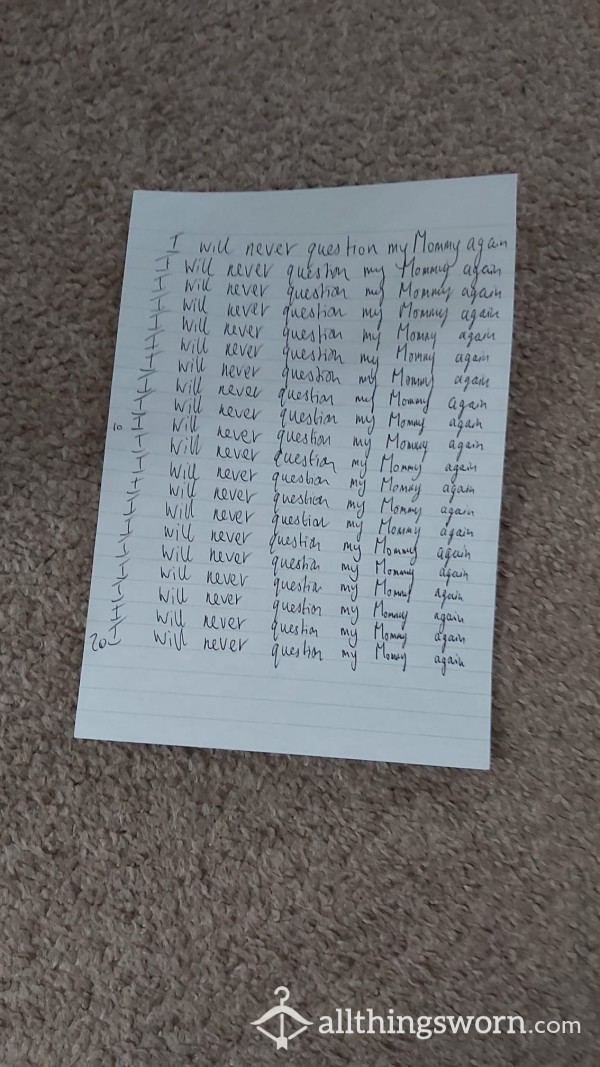 I will never question my Mommy again
I will never question my Mommy again
I will never question my Mommy again
I will never question my Mommy again
I will never question my Mommy again
I will never question my Mommy again
I will never question my Mommy again
I will never question my Mommy again
I will never question my Mommy again
10 I will never question my Mommy again
I will never question my Mommy again
I will never question my Mommy again
I will never question my Mommy again
I will never question my Mommy again
I will never question my Mommy again
I will never question my Mommy again
I will never question my Mommy again
I will never question my Mommy again
I will never question my Mommy again
20 I will never question my Mommy again
allthingsworn.com